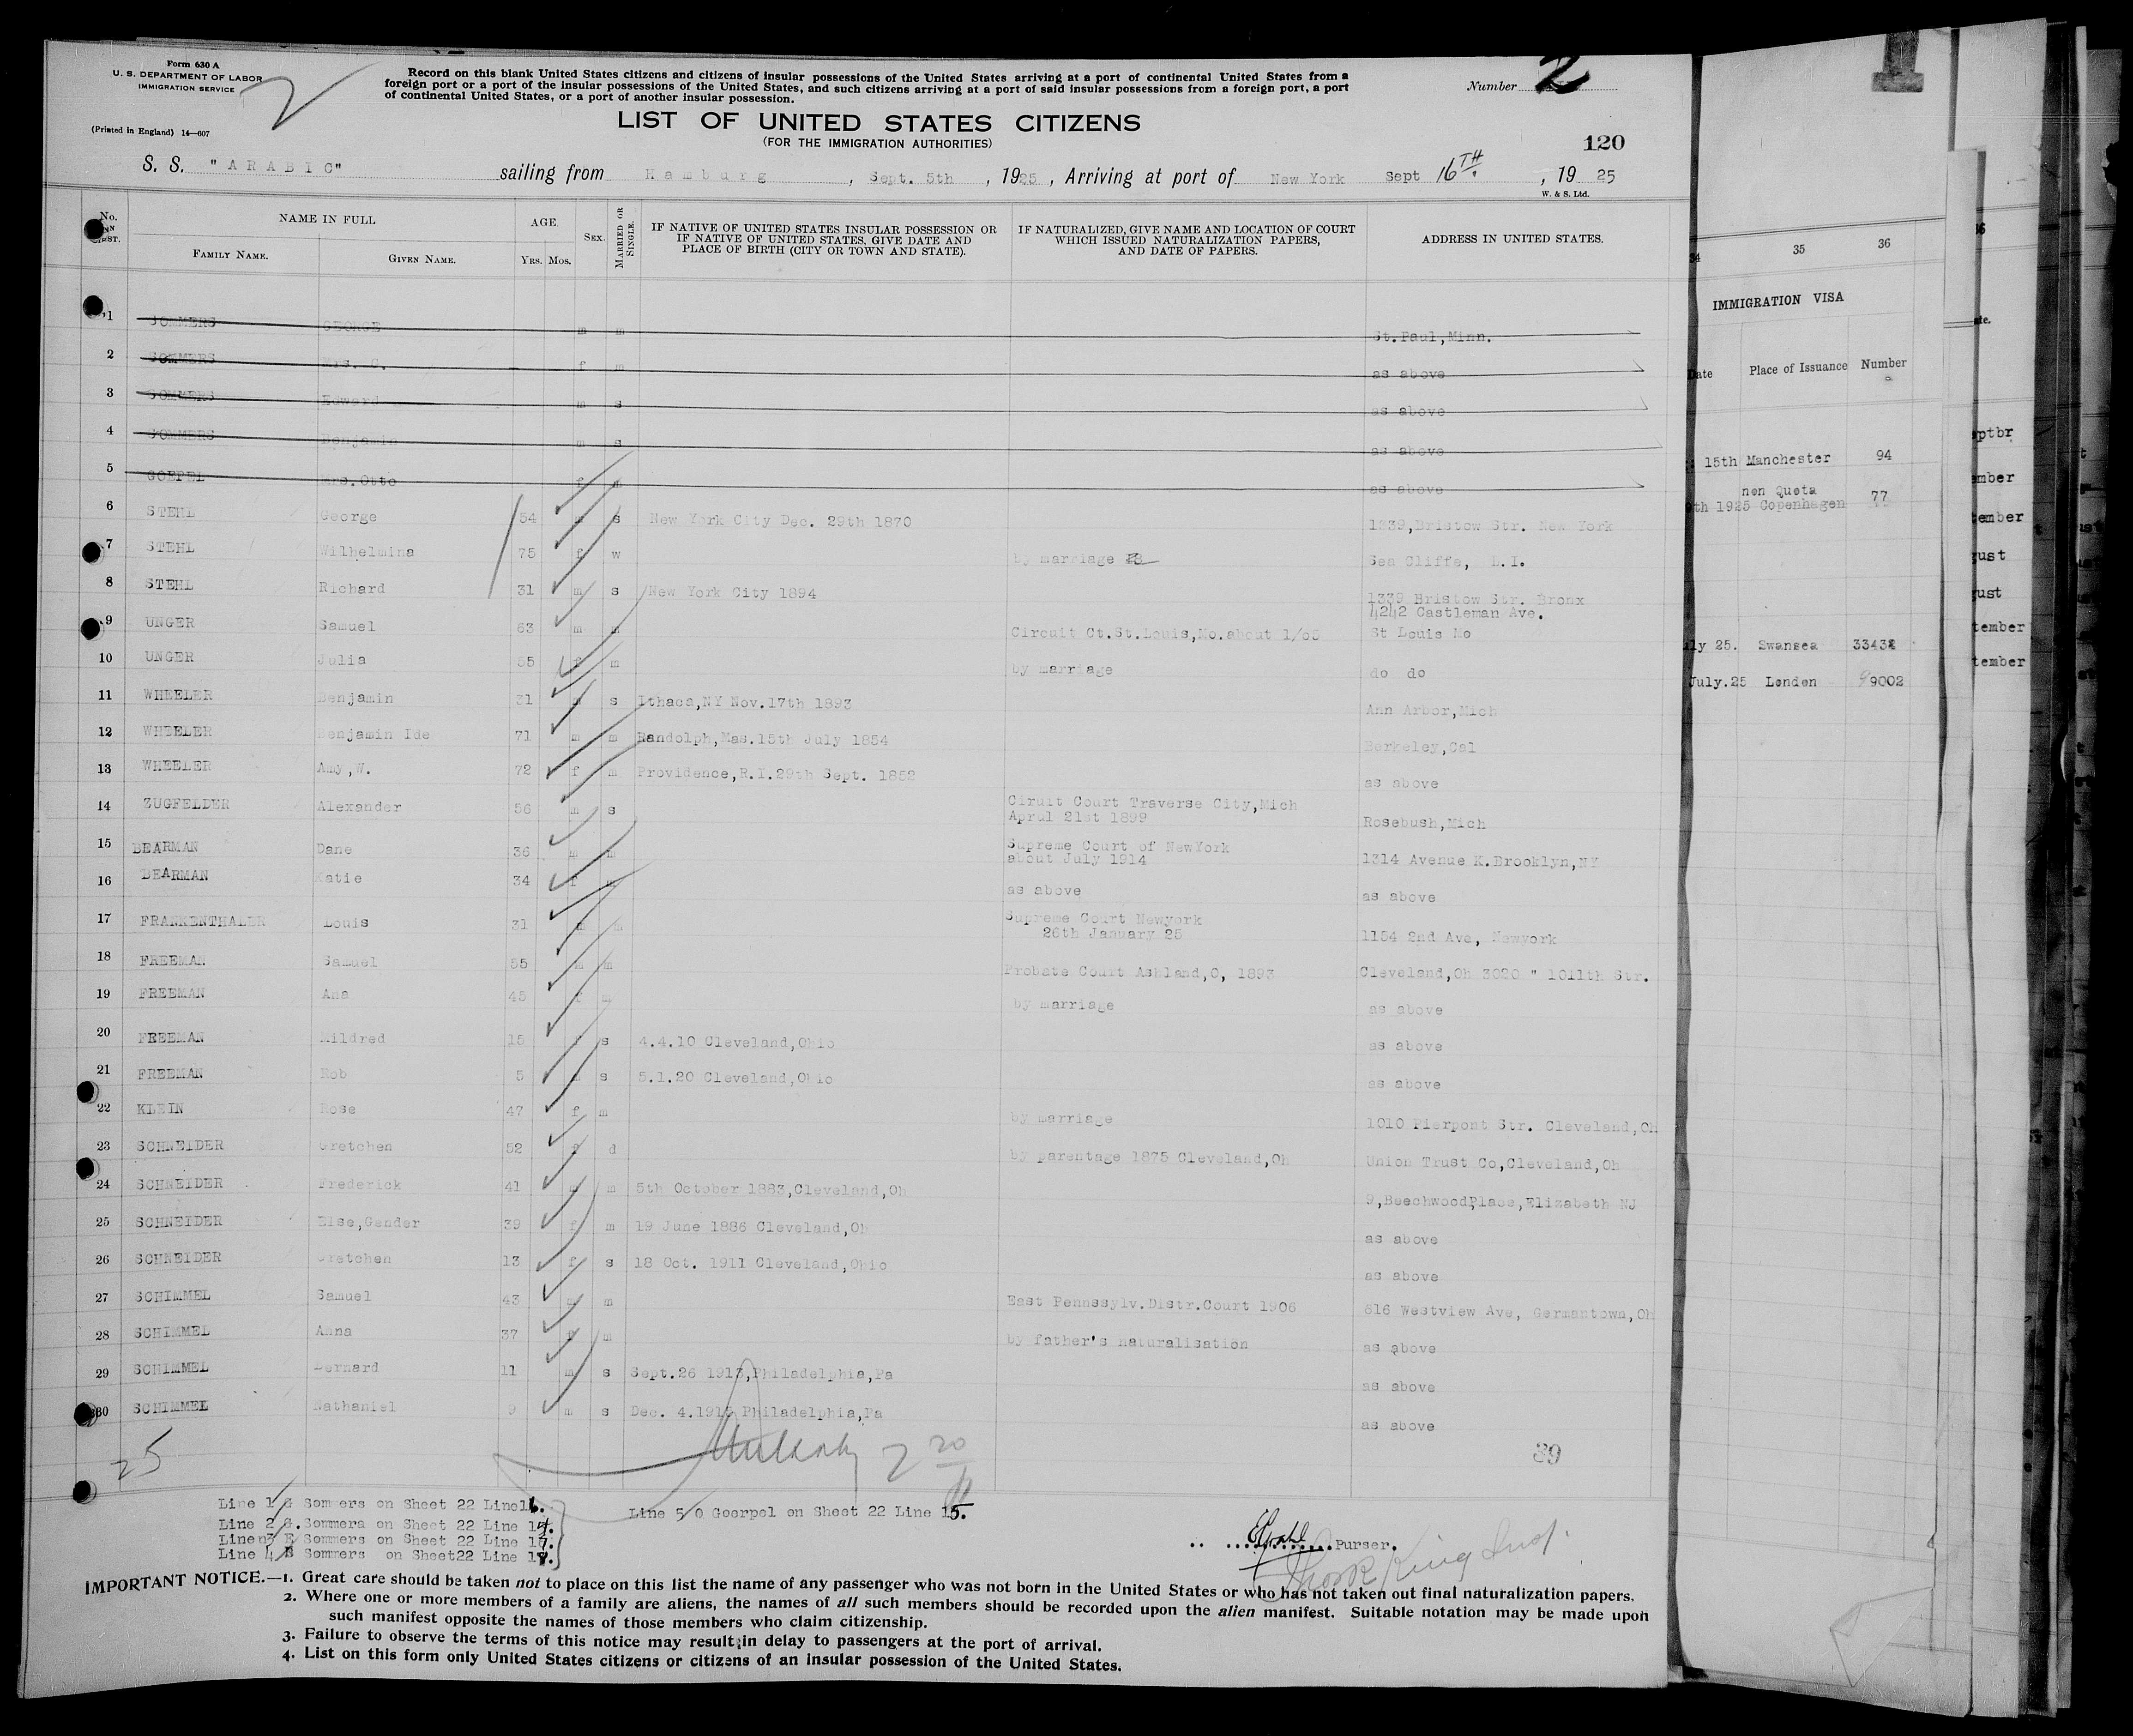 Form 630 A
U. S. DEPARTMENT OF LABOR
IMMIGRATION SERVICE
(Printed in England) 14—607
2
Record on this blank United States citizens and citizens of insular possessions of the United States arriving at a port of continental United States from a
foreign port or a port of the insular possessions of the United States, and such citizens arriving at a port of said insular possessions from a foreign port, a port
of continental United States, or a port of another insular possession.
Number 2
LIST OF UNITED STATES CITIZENS
(FOR THE IMMIGRATION AUTHORITIES)
120
S. S. "ARABIC" sailing from Hamburg, Sept. 5th, 1925, Arriving at port of New York Sept 16TH, 1925
W. & S. Ltd.
NAME IN FULL AGE SEX. MARRIED OR SINGLE. IF NATIVE OF UNITED STATES INSULAR POSSESSION OR IF NATIVE OF UNITED STATES, GIVE DATE AND PLACE OF BIRTH (CITY OR TOWN AND STATE). IF NATURALIZED, GIVE NAME AND LOCATION OF COURT WHICH ISSUED NATURALIZATION PAPERS, AND DATE OF PAPERS. ADDRESS IN UNITED STATES.
FAMILY NAME. GIVEN NAME. YRS. MOS.
1 SOMMERS GEORGE m m St.Paul,Minn.
2 SOMMERS Mrs. G. f m as above
3 SOMMERS Edward m s as above
4 SOMMERS Benjamin m s as above
5 GOEPEL Mrs.Otto f m as above
6 STEHL George 54 m s New York City Dec. 29th 1870 1339,Bristow Str. New York
7 STEHL Wilhelmina 75 f w by marriage Sea Cliffe, L.I.
8 STEHL Richard 31 m s New York City 1894 1339 Bristow Str. Bronx
4242 Castleman Ave.
9 UNGER Samuel 63 m m Circuit Ct.St.Louis,Mo.about St Louis Mo
10 UNGER Julia 55 f m by marriage do do
11 WHEELER Benjamin 31 m s Ithaca,NY Nov.17th 1893 Ann Arbor,Mich
12 WHEELER Benjamin Ide 71 m m Randolph,Mas.15th July 1854 Berkeley,Cal
13 WHEELER Amy,W. 72 f m Providence,R.I.29th Sept. 1852 as above
14 ZUGFELDER Alexander 56 m s Ciruit Court Traverse City,Mich
Aprul 21st 1899 Rosebush,Mich
15 BEARMAN Dane 36 m m Supreme Court of NewYork
about July 1914 1314 Avenue K.Brooklyn,NY
16 BEARMAN Katie 34 f m as above as above
17 FRANKENTHALER Louis 31 m m Supreme Court Newyork
26th January 25 1154 2nd Ave, Newyork
18 FREEMAN Samuel 55 m m Probate Court Ashland,O, 1893 Cleveland,Oh 3020 " 1011th Str.
19 FREEMAN Ana 45 f m by marriage as above
20 FREEMAN Mildred 15 f s 4.4.10 Cleveland,Ohio as above
21 FREEMAN Rob 5 s 5.1.20 Cleveland,Ohio as above
22 KLEIN Rose 47 f m by marriage 1010 Pierpont Str. Cleveland,Oh
23 SCHNEIDER Gretchen 52 f d by parentage 1875 Cleveland,Oh Union Trust Co,Cleveland,Oh
24 SCHNEIDER Frederick 41 m m 5th October 1883,Cleveland,Oh 9,Beechwood,Place,Elizabeth NJ
25 SCHNEIDER Else,Gander 39 f m 19 June 1886 Cleveland,Oh as above
26 SCHNEIDER Gretchen 13 f s 18 Oct. 1911 Cleveland,Ohio as above
27 SCHIMMEL Samuel 43 m m East Pennssylv.Distr.Court 1906 616 Westview Ave, Germantown,Oh
28 SCHIMMEL Anna 37 f m by father's naturalisation as above
29 SCHIMMEL Bernard 11 m s Sept.26 1913,Philadelphia,Pa as above
30 SCHIMMEL Nathaniel 9 m s Dec. 4.1915 Philadelphia,Pa as above
25
2 20
39
Line 1 G Sommers on Sheet 22 Line 16.
Line 5 O Goerpel on Sheet 22 Line 15.
Line 2 G. Sommers on Sheet 22 Line
Line 3 E Sommers on Sheet 22 Line
Line 4 B Sommers on Sheet22 Line
Purser.
IMPORTANT NOTICE.—1. Great care should be taken not to place on this list the name of any passenger who was not born in the United States or who has not taken out final naturalization papers.
2. Where one or more members of a family are aliens, the names of all such members should be recorded upon the alien manifest. Suitable notation may be made upon
such manifest opposite the names of those members who claim citizenship.
3. Failure to observe the terms of this notice may result in delay to passengers at the port of arrival.
4. List on this form only United States citizens or citizens of an insular possession of the United States.
34 35 36
IMMIGRATION VISA
Date Place of Issuance Number
15th Manchester 94
non Quota
9th 1925 Copenhagen 77
July 25. Swansea 33438
July.25 London 9002